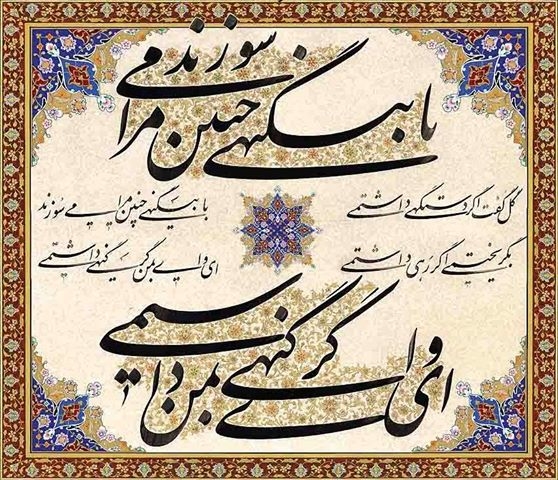 با بیگنهی چنین مرا می سوزند
گل گفت اگر دستگهی داشتمی با بیگنهی چنین مرا می سوزند
بگریختمی اگر رهی داشتمی ای وای بمن گر گنهی داشتمی
ای وای بمن گر گنهی داشتمی